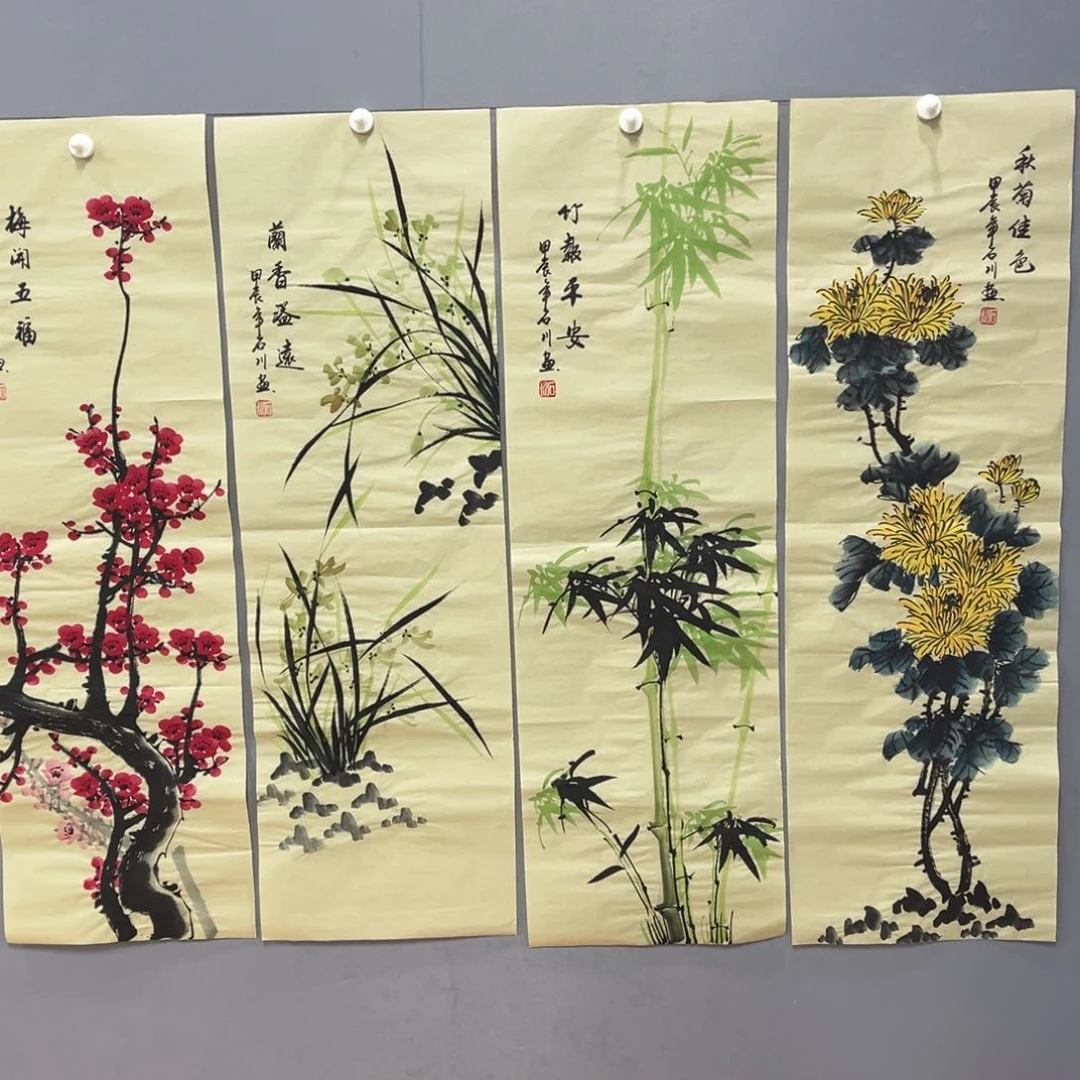 梅開五福
蘭香溢遠
甲辰年石川畫
竹報平安
甲辰年石川畫
秋菊佳色
甲辰年石川畫